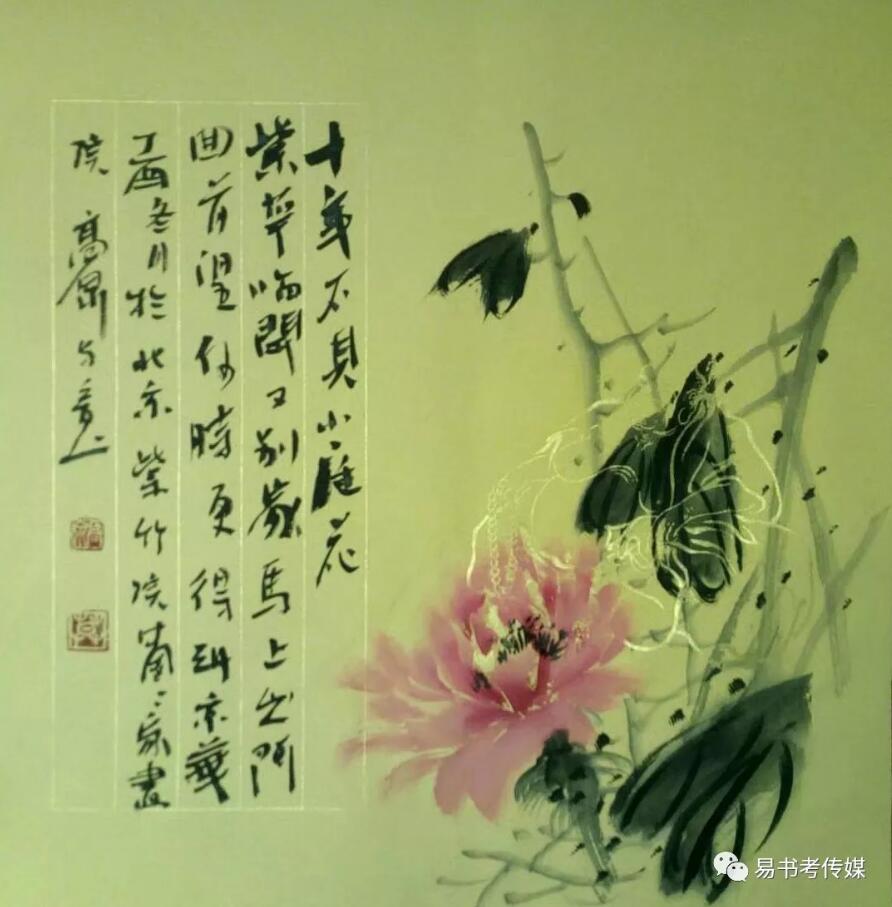 十年不見小庭花
紫萼临開又别家馬上出門
回首望何時更得到京華
丁酉冬月於北京紫竹院家畫
院高写意
易书考传媒